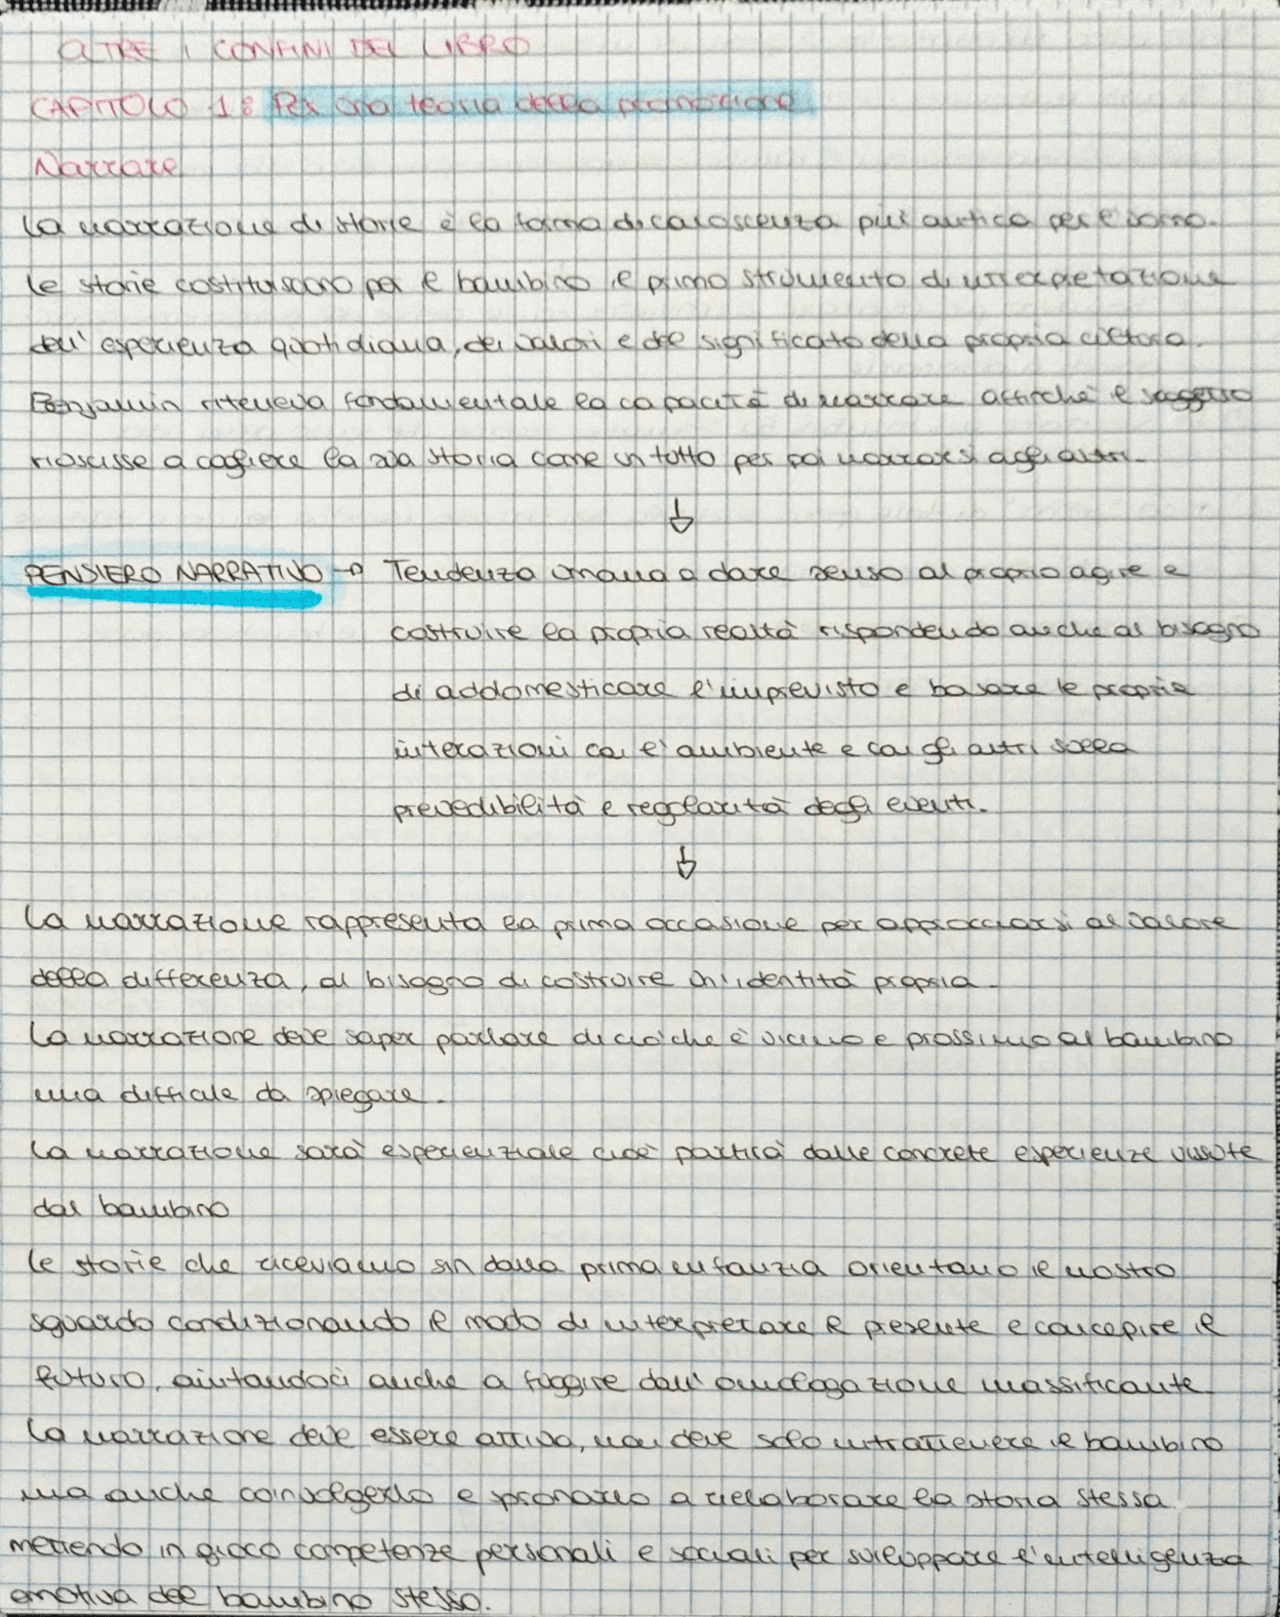 OLTRE I CONFINI DEL LIBRO
CAPITOLO 1: Per una teoria della promozione
Narrare
La narrazione di storie è la forma di conoscenza più antica per l'uomo.
Le storie costituiscono per il bambino il primo strumento di interpretazione
dell'esperienza quotidiana, dei valori e del significato della propria cultura.
Benjamin riteneva fondamentale la capacità di narrare affinchè il soggetto
riuscisse a cogliere la sua storia come un tutto per poi narrarsi agli altri.
↓
PENSIERO NARRATIVO → Tendenza umana a dare senso al proprio agire e
costruire la propria realtà rispondendo anche al bisogno
di addomesticare l'imprevisto e basare le proprie
interazioni con l'ambiente e con gli altri sulla
prevedibilità e regolarità degli eventi.
↓
La narrazione rappresenta la prima occasione per approcciarsi al valore
della differenza, al bisogno di costruire un'identità propria.
La narrazione deve saper parlare di ciò che è vicino e prossimo al bambino
ma difficile da spiegare.
La narrazione sarà esperienziale cioè partirà dalle concrete esperienze vissute
dal bambino
Le storie che riceviamo sin dalla prima infanzia orientano il nostro
sguardo condizionando il modo di interpretare il presente e concepire il
futuro, aiutandoci anche a fuggire dall'omologazione massificante.
La narrazione deve essere attiva, non deve solo intrattenere il bambino
ma anche coinvolgerlo e spronarlo a rielaborare la storia stessa
mettendo in gioco competenze personali e sociali per sviluppare l'intelligenza
emotiva del bambino stesso.